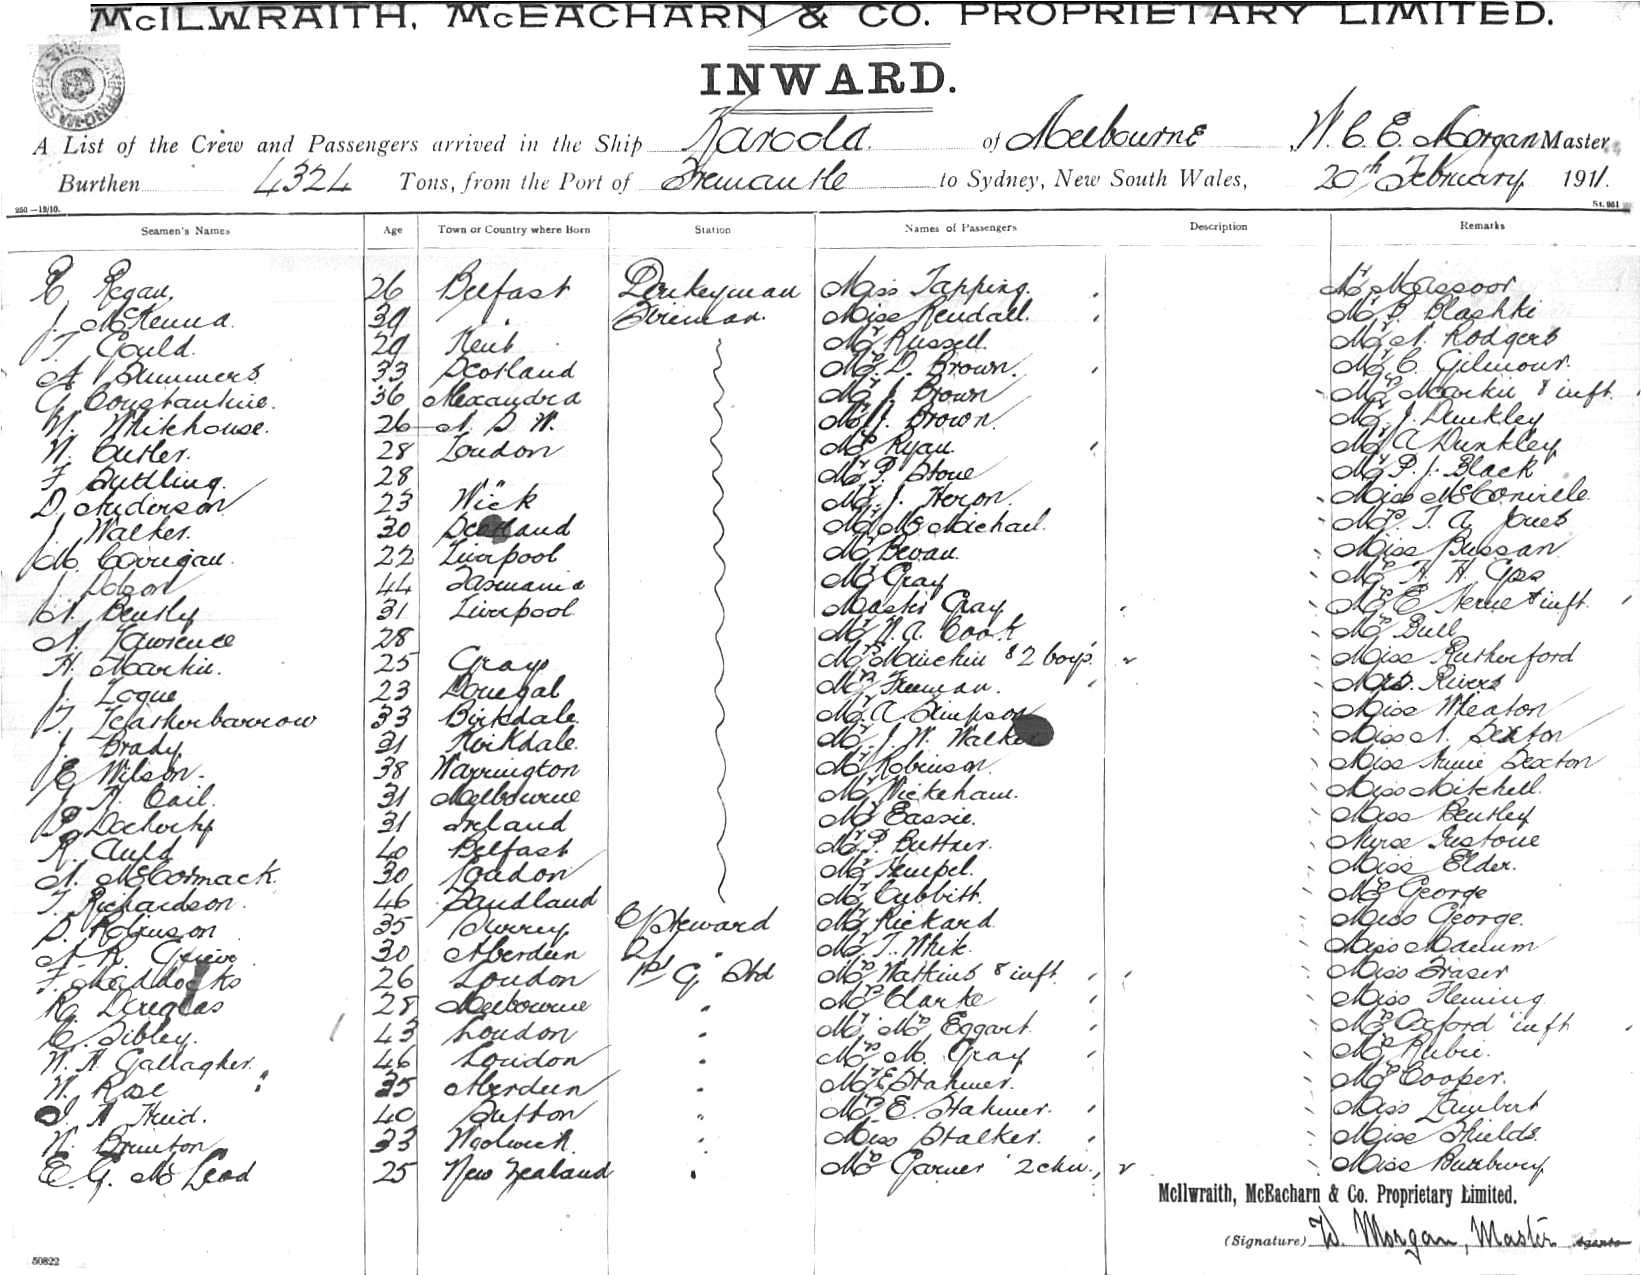 McILWRAITH, McEACHARN & CO. PROPRIETARY LIMITED.
INWARD.
A List of the Crew and Passengers arrived in the Ship Karoola of Melbourne W. C. E. Morgan Master,
Burthen 4324 Tons, from the Port of Fremantle to Sydney, New South Wales, 20th February 1911.
250 —12/10. St. 951
Seamen's Names Age Town or Country where Born Station Names of Passengers Description Remarks
R. Regan, 26 Belfast Donkeyman Miss Tapping. Mr Massoor
J. McKenna. 39 " Fireman. Miss Kendall. Mr B. Blashki
T. Gould. 29 Kent Mr Russell. Mr N. Rodgers
A. Summers 33 Scotland Mrs D. Brown. Mr C. Gilmour.
G. Constantine. 36 Alexandra Mr J. Brown Mrs Markie & inft.
W. Whitehouse. 26 N. S. W. Mr J. Brown. Mr J. Dunkley
W. Butler. 28 London Mrs Ryan. Mr A Dunkley
F. Suttling. 28 " Mr P. Stone Mr P. J. Black
D. Anderson 23 Wick Mr J. Heron. Miss McConville
J. Walker. 30 Scotland Mr McMichael. Mrs T. A. Jones
M. Corrigan. 22 Liverpool Mr Bevan. Miss Bussan
J. 44 Tasmania Mr Gray Mrs H. H.
A. Bently 31 Liverpool Master Gray Mrs E & inft.
A. Lawrence 28 Mr W. A. Cook Mrs Bull
H. Markie. 25 Grays Mrs & 2 boys. Miss Rutherford
J. Logue 23 Donegal Mrs Freeman. Mrs Rivers
T. Leatherbarrow 33 Birkdale Mr A. Simpson Miss Wheaton
J. Brady 31 Kirkdale. Mr J. W. Walker Miss A. Sexton
E. Wilson. 38 Warrington Mr Robinson. Miss Annie Sexton
J. A. Cail. 31 Melbourne Mr Wickham. Miss Mitchell.
P. Docherty 31 Ireland Mr Eassie. Miss Bentley
R. Auld 40 Belfast Mr P. Buttner. Nurse
A. McCormack. 30 London Mr Hempel. Miss Elder.
T. Richardson. 46 Mr Cubbitt. Mrs George
S. Robinson 35 Surrey C/Steward Mr Rickard Miss George.
A. R. Grieve 30 Aberdeen 2/ " Mr T. Miss
F. Maddocks 26 London 1st G. Std Mrs Watkins & inft. Miss Fraser
R. Douglas 28 Melbourne " Mrs Clarke Miss Fleming.
C. Sibley. 43 London " Mr Mrs Eggart. Mrs Oxford inft
W. H Gallagher. 46 London " Mrs M. Gray Mrs Rubie.
W. Rose 35 Aberdeen " Mr E Stahmer. Mrs Cooper.
J. A 40 Sutton " Mrs E. Stahmer. Miss Lambert
W. Brunton 33 Woolwich. " Miss Stalker. Miss Shields.
E. G. McLeod 25 New Zealand " Mrs Garner 2 chn., Miss Bunbury
McIlwraith, McEacharn & Co. Proprietary Limited.
(Signature) W. Morgan, Master Agents
50822